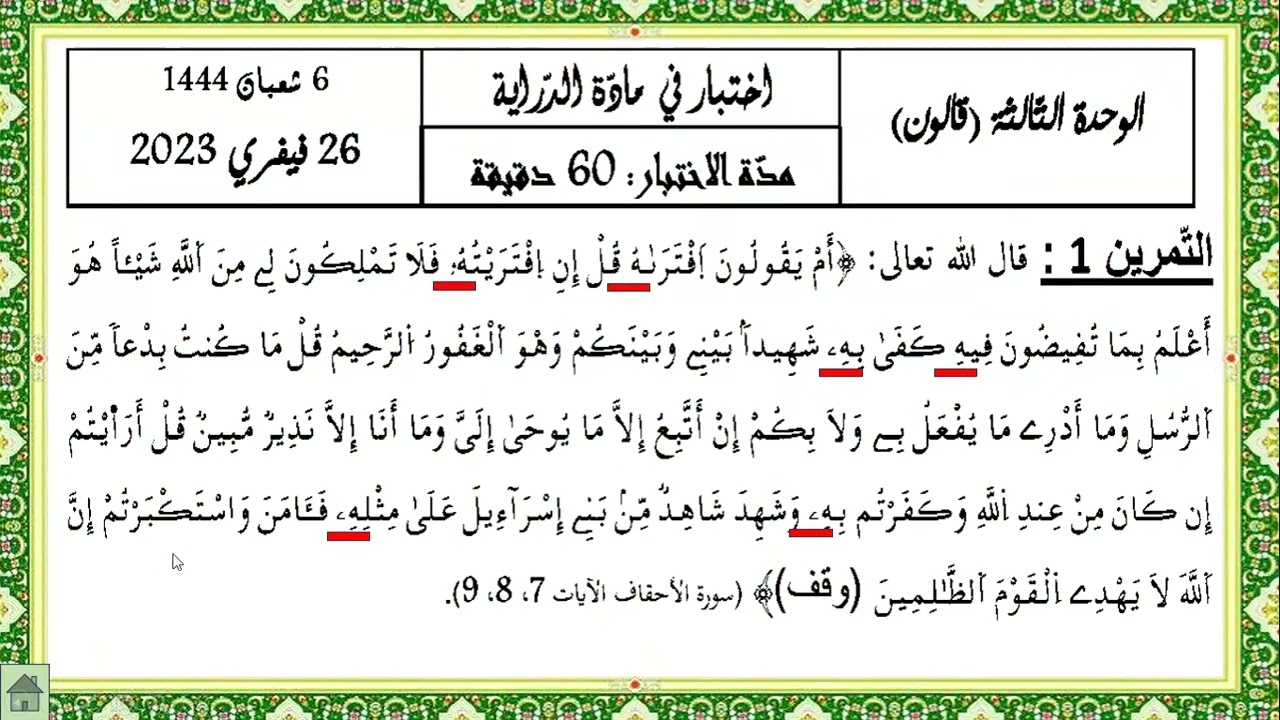 الوحدة الثّالثة (قالون)
اختبار في مادّة الدّراية
مدّة الاختبار: 60 دقيقة
6 شعبان 1444
26 فيفري 2023
التّمرين 1 : قال الله تعالى: ﴿أَمْ يَقُولُونَ اَفْتَرَىٰهُ قُلْ إِنِ اِفْتَرَيْتُهُۥ فَلَا تَمْلِكُونَ لِے مِنَ اَللَّهِ شَيْـٔاً هُوَ
أَعْلَمُ بِمَا تُفِيضُونَ فِيهِ كَفَىٰ بِهِۦ شَهِيداَۢ بَيْنِے وَبَيْنَكُمْ وَهْوَ اَلْغَفُورُ اُلرَّحِيمُ قُلْ مَا كُنتُ بِدْعاً مِّنَ
اَلرُّسُلِ وَمَا أَدْرِے مَا يُفْعَلُ بِے وَلَا بِكُمْ إِنْ أَتَّبِعُ إِلَّا مَا يُوحَىٰ إِلَىَّ وَمَا أَنَا إِلَّا نَذِيرٌ مُّبِينٌ قُلْ أَرَأَيْتُمْ
إِن كَانَ مِنْ عِندِ اِللَّهِ وَكَفَرْتُم بِهِۦ وَشَهِدَ شَاهِدٌ مِّنۢ بَنِے إِسْرَآءِيلَ عَلَىٰ مِثْلِهِۦ فَـَٔامَنَ وَاسْتَكْبَرْتُمْ إِنَّ
اَللَّهَ لَا يَهْدِے اِلْقَوْمَ اَلظَّـٰلِمِينَ (وقف)﴾ (سورة الأحقاف الآيات 7، 8، 9).